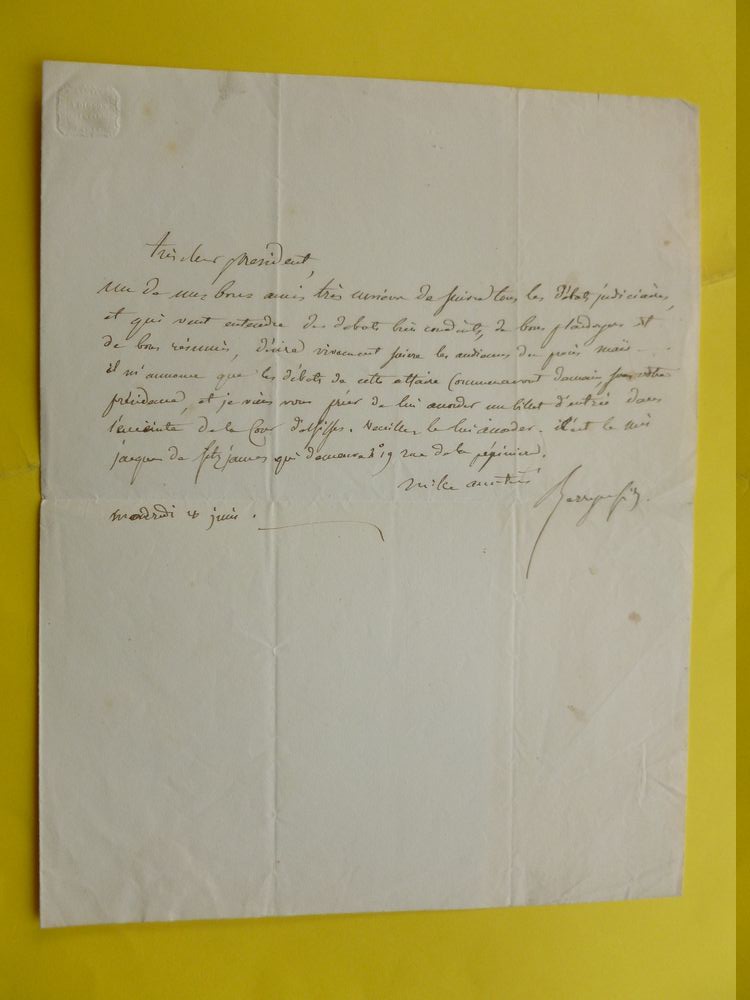 très cher président,
un de mes bons amis très curieux de suivre tous les débats judiciaires,
et qui veut entendre des débats bien conduits, de bons plaidoyers et
de bons résumés, désire vivement suivre les audiences du procès
il m'annonce que les débats de cette affaire commenceront demain, sous votre
présidence, et je viens vous prier de lui accorder un billet d'entrée dans
l'enceinte de la Cour d'assises. Veuillez le lui accorder. il est le
jacques de fitzjames qui demeure n° 19 rue de la pépinière.
mille amitiés
Berryer fils.
juin.